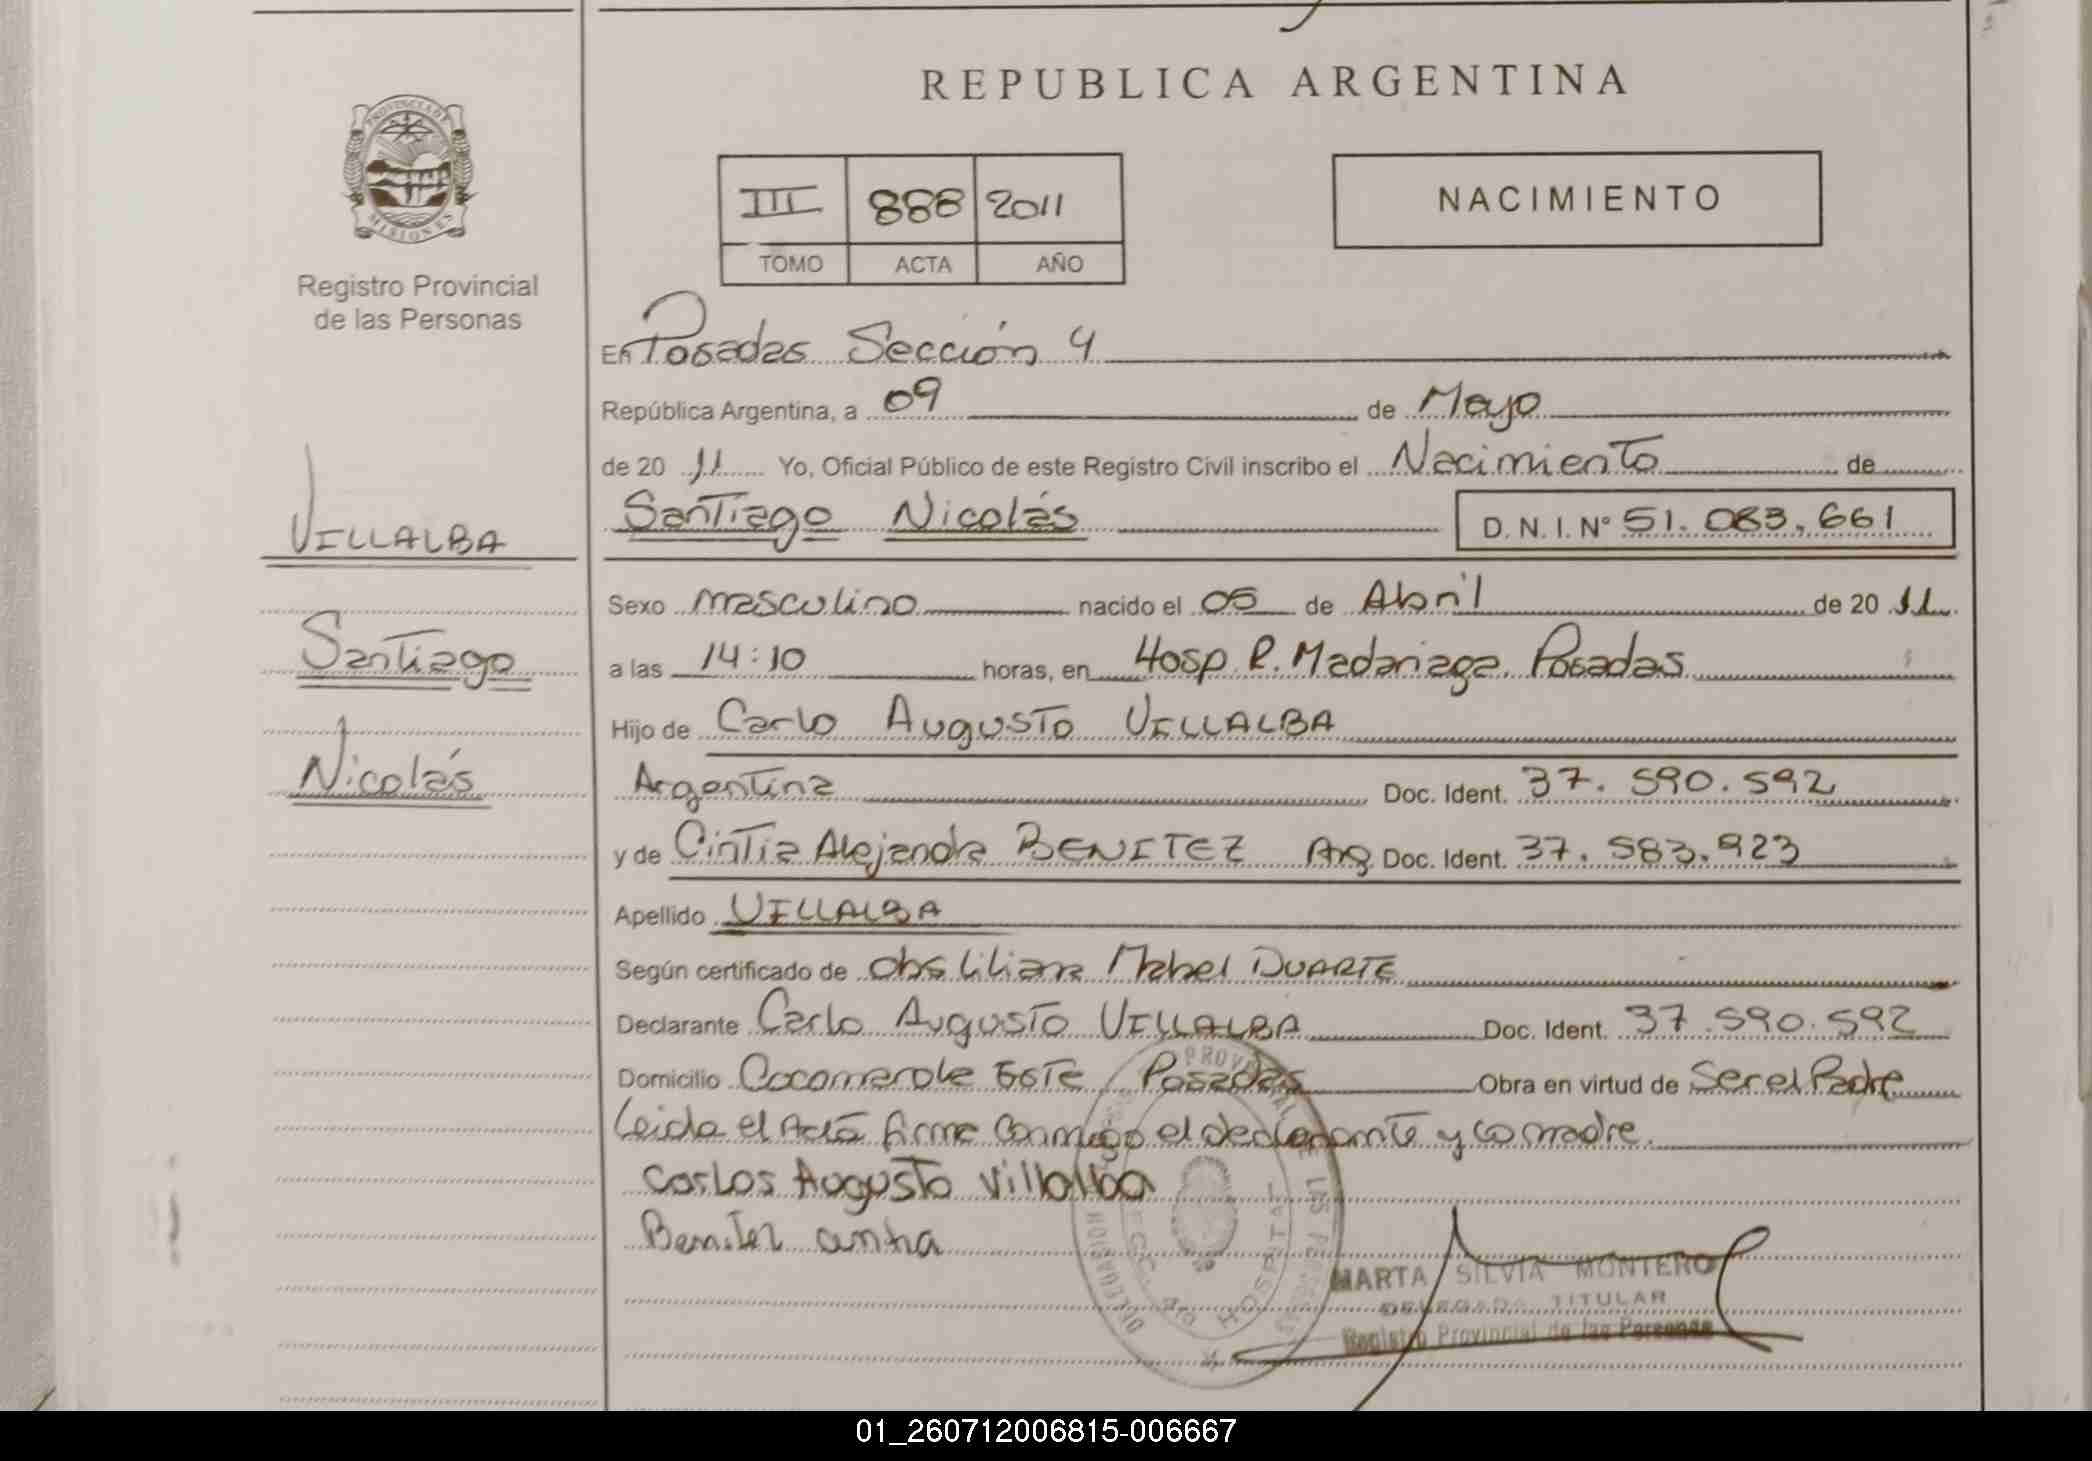 REPUBLICA ARGENTINA
PROVINCIA DE
MISIONES
Registro Provincial
de las Personas
III 888 2011
TOMO ACTA AÑO
NACIMIENTO
VILLALBA
Santiago
Nicolás
En Posadas Sección 4
República Argentina, a 09 de Mayo
de 20 11 Yo, Oficial Público de este Registro Civil inscribo el Nacimiento de
Santiago Nicolás D. N. I. N° 51.083.661
Sexo masculino nacido el 05 de Abril de 20 11
a las 14:10 horas, en Hosp. R. Madariaga. Posadas
Hijo de Carlo Augusto VILLALBA
Argentina Doc. Ident. 37.590.592
y de Cintia Alejandra BENITEZ Arg Doc. Ident. 37.583.923
Apellido VILLALBA
Según certificado de Obs. Lilian Mabel DUARTE
Declarante Carlo Augusto VILLALBA Doc. Ident. 37.590.592
Domicilio Cocomarola Este Posadas Obra en virtud de Ser el Padre
Leida el Acta firma conmigo el declarante y la madre.
Carlos Augusto Villalba
Benitez cintia
MARTA SILVIA MONTERO
DELEGADA TITULAR
Registro Provincial de las Personas
01_260712006815-006667